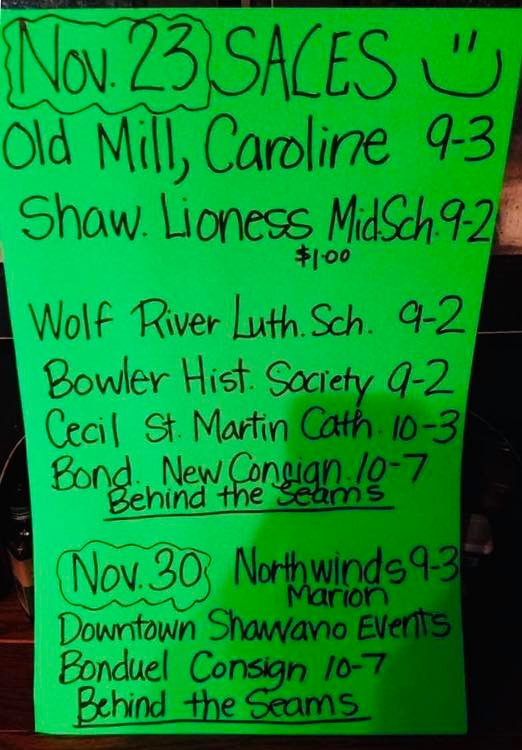 Nov. 23 SALES
Old Mill, Caroline 9-3
Shaw. Lioness Mid.Sch. 9-2
$1.00
Wolf River Luth. Sch. 9-2
Bowler Hist. Society 9-2
Cecil St. Martin Cath. 10-3
Bond. New Consign. 10-7
Behind the Seams
Nov. 30 Northwinds 9-3
Marion
Downtown Shawano Events
Bonduel Consign 10-7
Behind the Seams